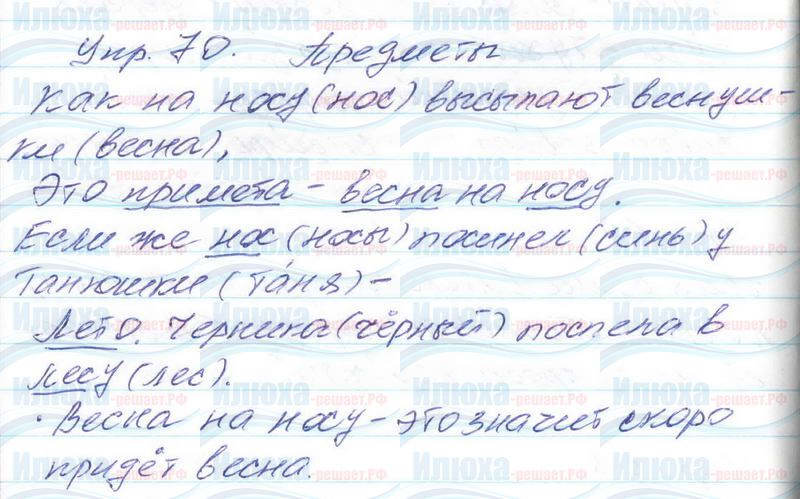 Упр. 70. Предметы
Как на носу (нос) высыпают веснуш-
ки (весна),
Это примета - весна на носу.
Если же нос (носы) посинел (синь) у
Танюшки (Таня) -
Лето. Черника (чёрный) поспела в
лесу (лес).
Весна на носу - это значит скоро
придёт весна.
Илюха-решает.РФ